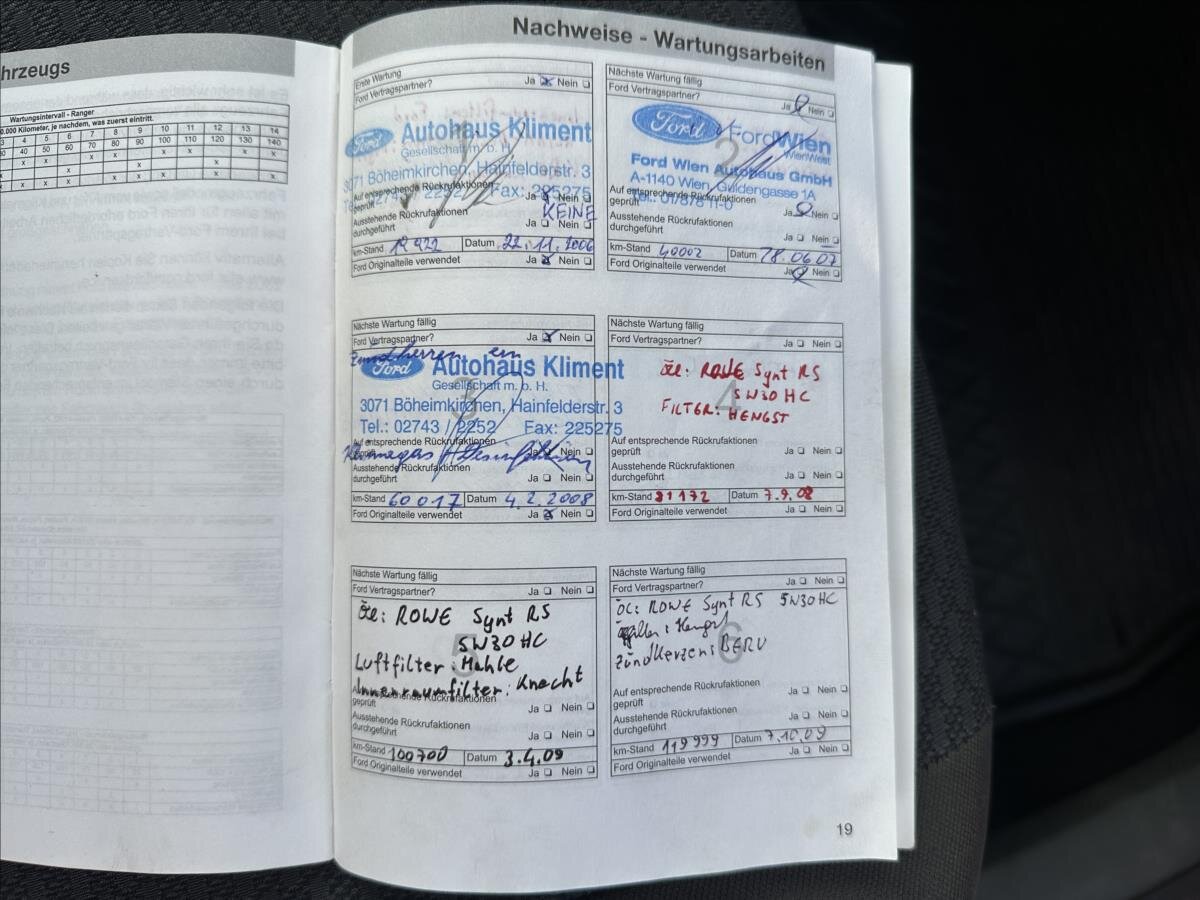 hrzeugs
Wartungsintervall - Ranger
0.000 Kilometer, je nachdem, was zuerst eintritt.
3 4 5 6 7 8 9 10 11 12 13 14
40 50 60 70 80 90 100 110 120 130 140
Nachweise - Wartungsarbeiten
Erste Wartung
Ford Vertragspartner? Ja Nein
1
Ford Autohaus Kliment
Gesellschaft m. b. H.
3071 Böheimkirchen, Hainfelderstr. 3
Fax: 225275
Auf entsprechende Rückrufaktionen
geprüft Ja Nein
KEINE
Ausstehende Rückrufaktionen
durchgeführt Ja Nein
km-Stand 19422 Datum 22.11.2006
Ford Originalteile verwendet Ja Nein
Nächste Wartung fällig
Ford Vertragspartner?
Ja Nein
2
Ford FordWien
WienWest
Ford Wien Autohaus GmbH
A-1140 Wien, Guldengasse 1A
Tel.: 01/878 11-0
Auf entsprechende Rückrufaktionen
geprüft Ja Nein
Ausstehende Rückrufaktionen
durchgeführt Ja Nein
km-Stand 40002 Datum 28.06.07
Ford Originalteile verwendet Ja Nein
Nächste Wartung fällig
Ford Vertragspartner? Ja Nein
3
Ford Autohaus Kliment
Gesellschaft m. b. H.
3071 Böheimkirchen, Hainfelderstr. 3
Tel.: 02743 / 2252 Fax: 225275
Auf entsprechende Rückrufaktionen
geprüft Ja Nein
Ausstehende Rückrufaktionen
durchgeführt Ja Nein
km-Stand 60017 Datum 4.2.2008
Ford Originalteile verwendet Ja Nein
Nächste Wartung fällig
Ford Vertragspartner? Ja Nein
4
Öl: ROWE Synt RS
5W30 HC
FILTER: HENGST
Auf entsprechende Rückrufaktionen
geprüft Ja Nein
Ausstehende Rückrufaktionen
durchgeführt Ja Nein
km-Stand 81172 Datum 7.9.08
Ford Originalteile verwendet Ja Nein
Nächste Wartung fällig
Ford Vertragspartner? Ja Nein
5
Öl: ROWE Synt RS
5W30 HC
Luftfilter: Mahle
Innenraumfilter: Knecht
Auf entsprechende Rückrufaktionen
geprüft Ja Nein
Ausstehende Rückrufaktionen
durchgeführt Ja Nein
km-Stand 100700 Datum 3.4.09
Ford Originalteile verwendet Ja Nein
Nächste Wartung fällig
Ford Vertragspartner? Ja Nein
6
Öl: ROWE Synt RS 5W30 HC
Zündkerzen: BERU
Auf entsprechende Rückrufaktionen
geprüft Ja Nein
Ausstehende Rückrufaktionen
durchgeführt Ja Nein
km-Stand 119999 Datum 7.10.09
Ford Originalteile verwendet Ja Nein
19